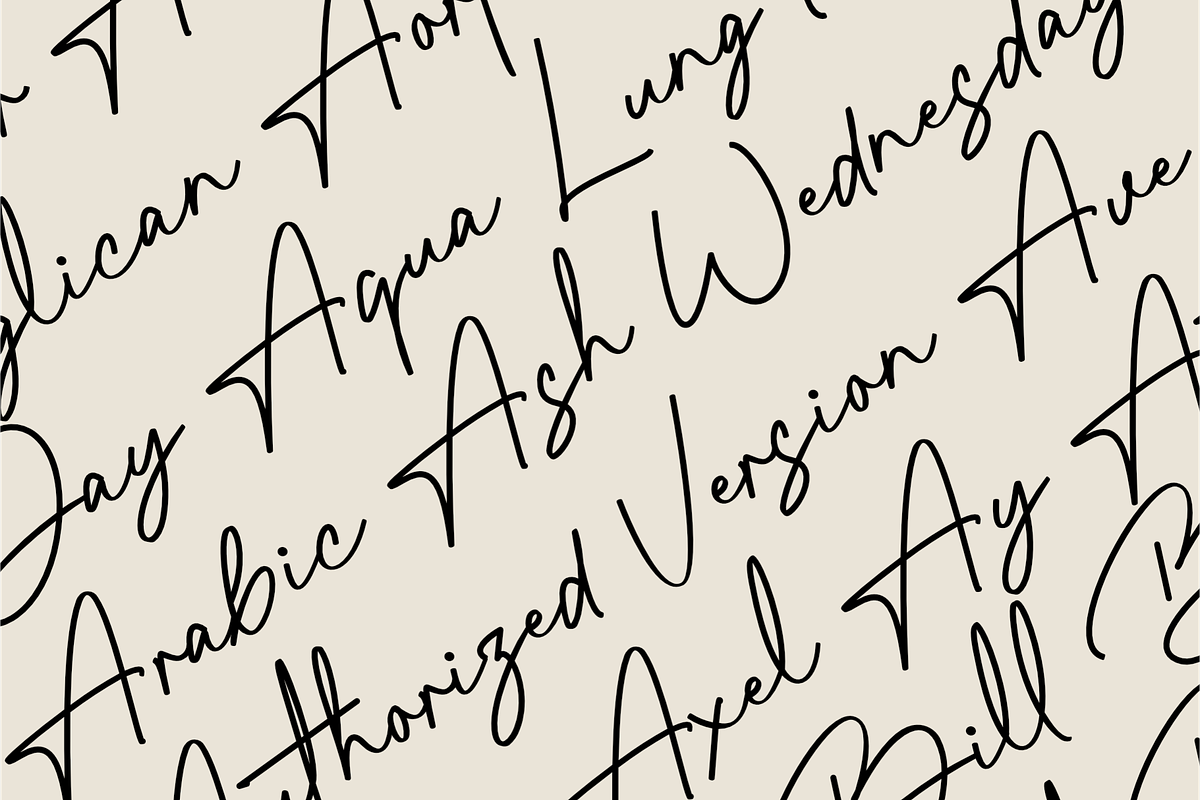 glican Aor
Day Aqua Lung
Arabic Ash Wednesday
Authorized Version Ave
Axel Ay A
Bill B